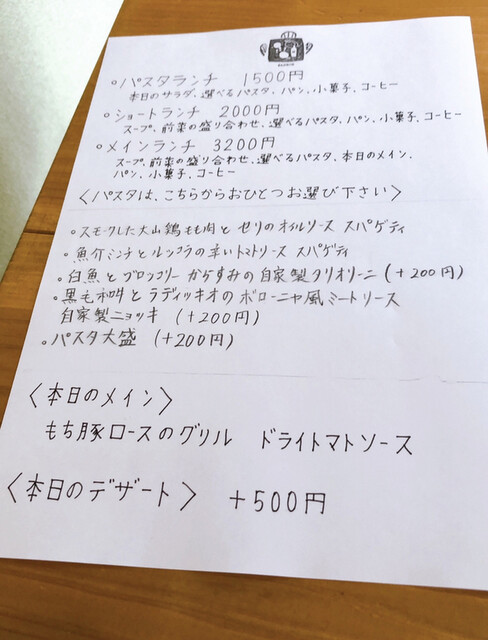 ○パスタランチ 1500円
本日のサラダ、選べるパスタ、パン、小菓子、コーヒー
○ショートランチ 2000円
スープ、前菜の盛り合わせ、選べるパスタ、パン、小菓子、コーヒー
○メインランチ 3200円
スープ、前菜の盛り合わせ、選べるパスタ、本日のメイン、
パン、小菓子、コーヒー
〈パスタは、こちらからおひとつお選び下さい〉
○スモークした大山鶏もも肉とセリのオイルソース スパゲティ
○魚介ミンチとルッコラの辛いトマトソース スパゲティ
○白魚とブロッコリー からすみの自家製タリオリーニ (+200円)
○黒毛和牛とラディッキオのボローニャ風ミートソース
自家製ニョッキ (+200円)
○パスタ大盛 (+200円)
〈本日のメイン〉
もち豚ロースのグリル ドライトマトソース
〈本日のデザート〉 +500円